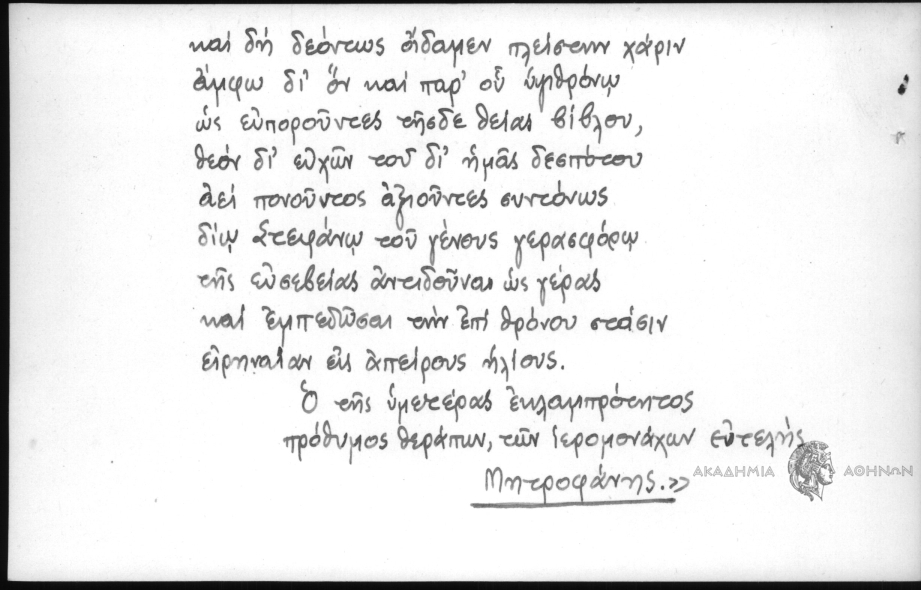 καί δή δεόντως οἴδαμεν πλείστην χάριν
ἄμφω δι' ὅν καί παρ' οὗ ὑψιθρόνῳ
ὡς εὐποροῦντες τῆσδε θείας βίβλου,
θεόν δι' εὐχῶν τοῦ δι' ἡμᾶς δεσπότου
ἀεί πονοῦντος ἀξιοῦντες συντόνως
δίῳ Στεφάνῳ τοῦ γένους γερασφόρῳ
τῆς εὐσεβείας ἀντιδοῦναι ὡς γέρας
καί ἐμπεδῶσαι τήν ἐπί θρόνου στάσιν
εἰρηναίαν εἰς ἀπείρους ἡλίους.
Ὁ τῆς ὑμετέρας ἐκλαμπρότητος
πρόθυμος θεράπων, τῶν ἱερομονάχων εὐτελής
Μητροφάνης.»
ΑΚΑΔΗΜΙΑ ΑΘΗΝΩΝ